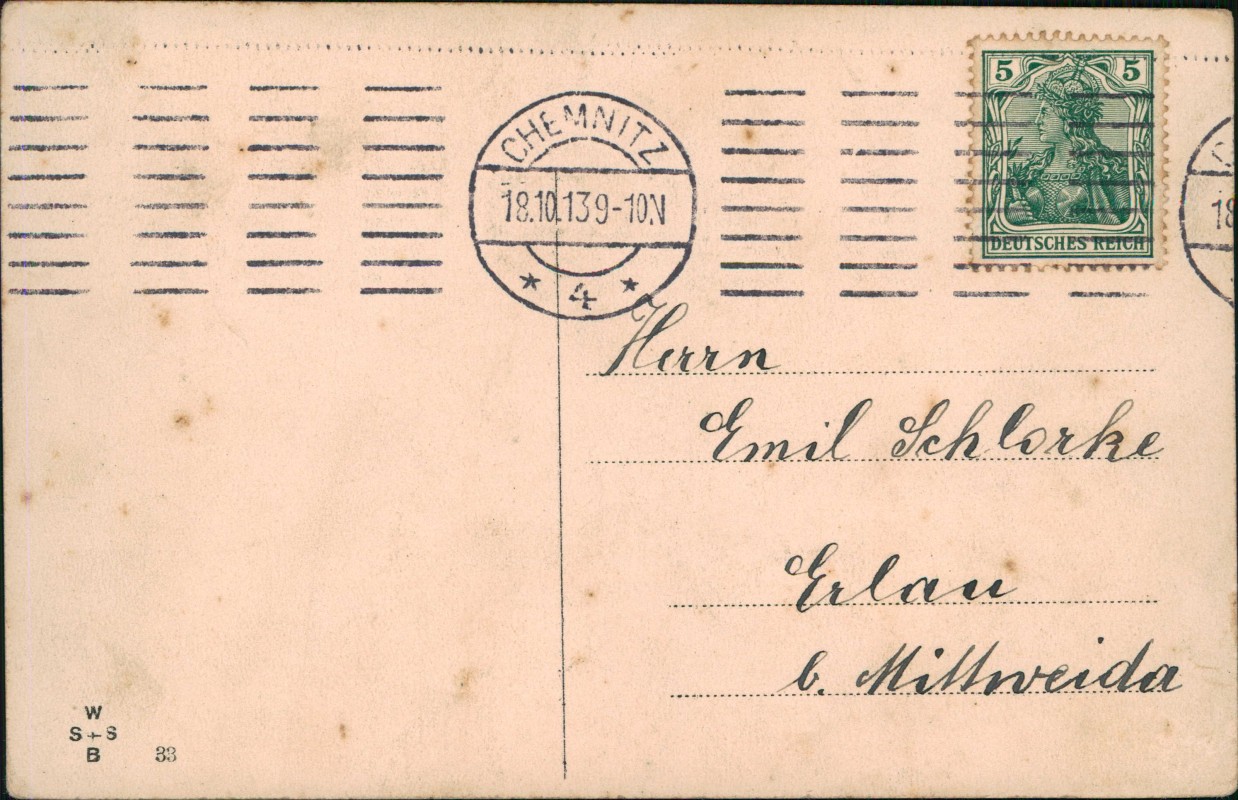 CHEMNITZ
18.10.13 9-10N
* 4 *
5 5
DEUTSCHES REICH
C
18
Herrn
Emil Schlorke
Erlau
b. Mittweida
W
S+S
B
33